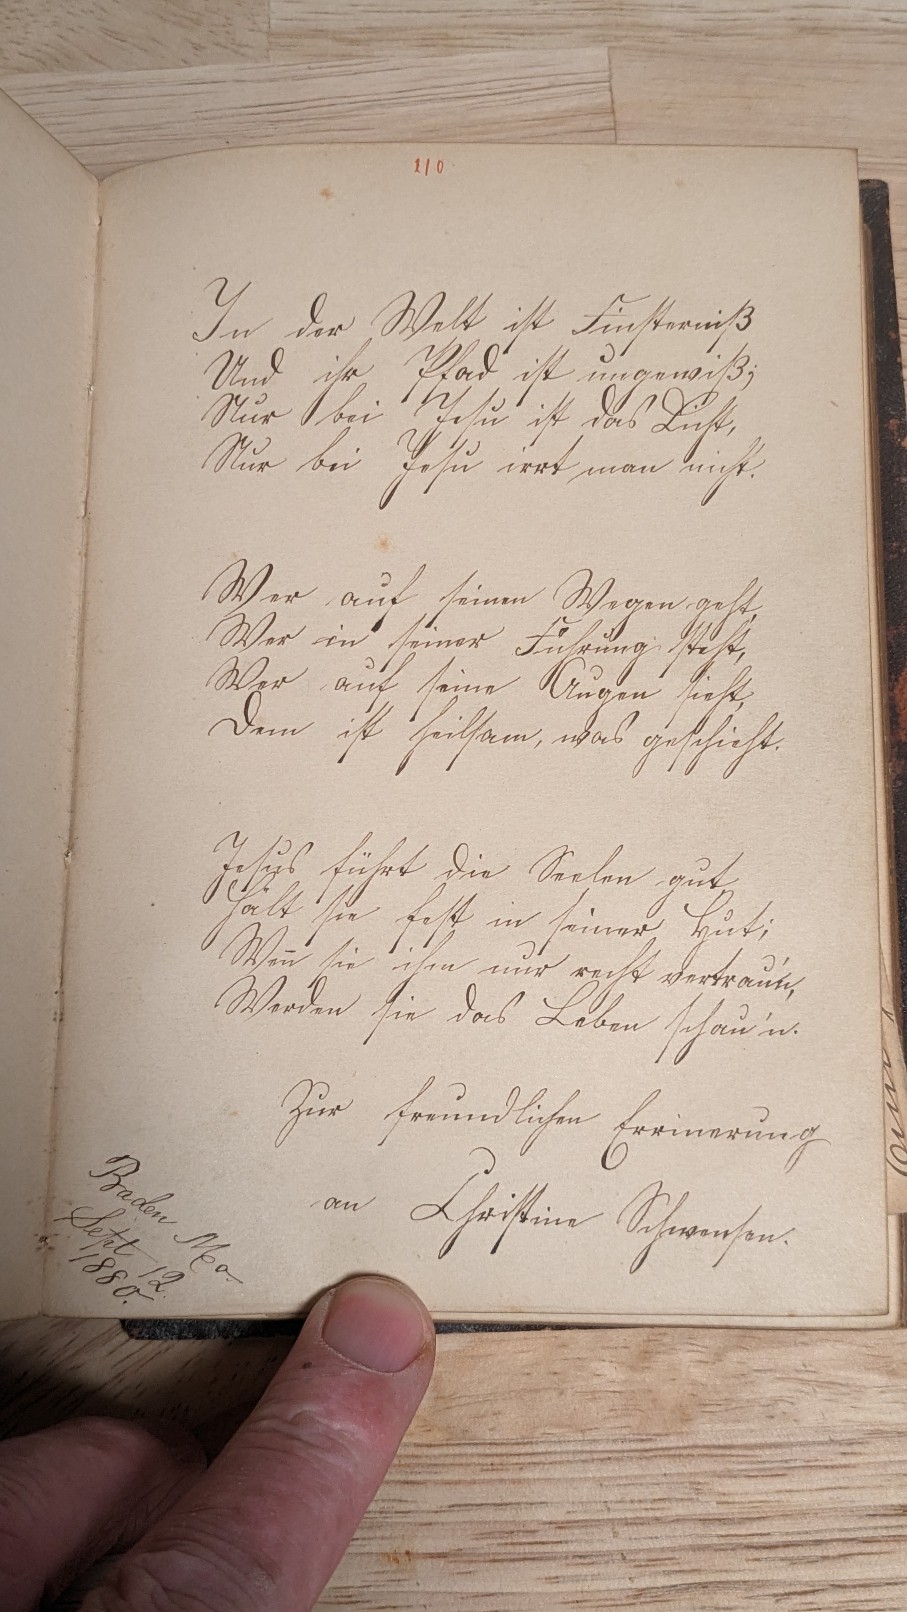 210
In der Welt ist Finsterniß
Und ihr Pfad ist ungewiß;
Nur bei Jesu ist das Licht,
Nur bei Jesu irrt man nicht.
Wer auf seinen Wegen geht,
Wer in seiner Führung steht,
Wer auf seine Augen sieht,
Dem ist heilsam, was geschieht.
Jesus führt die Seelen gut,
Hält sie fest in seiner Hut;
Weñ sie ihm nur recht vertrau'n,
Werden sie das Leben schau'n.
Zur freundlichen Errinerung
an Christine Schwensen.
Baden Mo.
Sept 12.
1880.